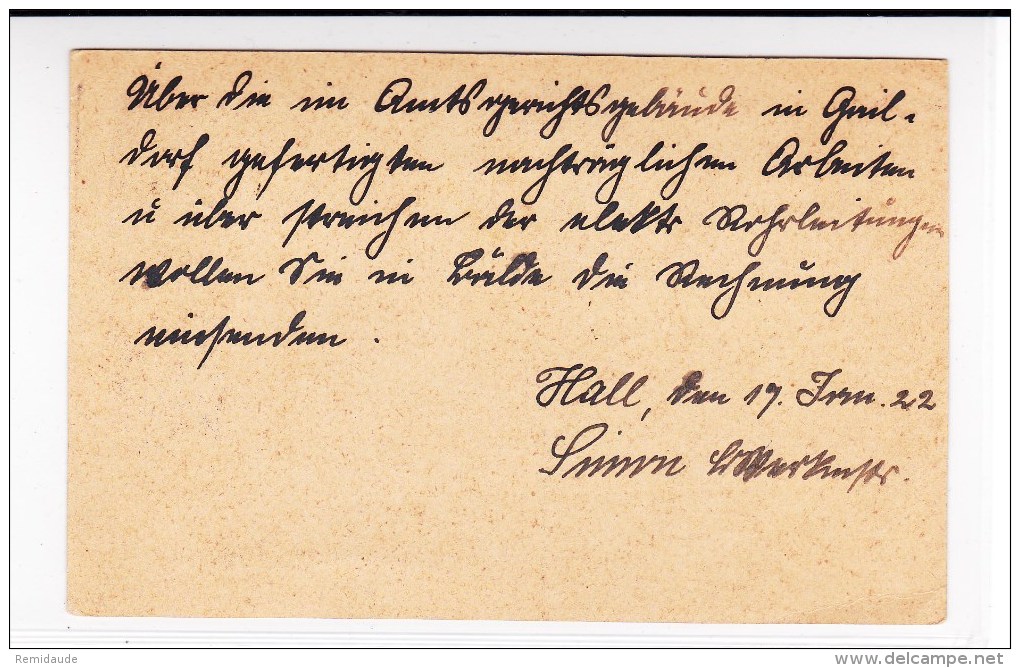 Über die im Amtsgerichtsgebäude in Gail-
dorf gefertigten nachträglichen Arbeiten
u über streichen der elektr Rohrleitungen
wollen Sie in Bälde die Rechnung
einsenden.
Hall, den 17. Jan. 22
Simon
Remidaude
delcampe.net